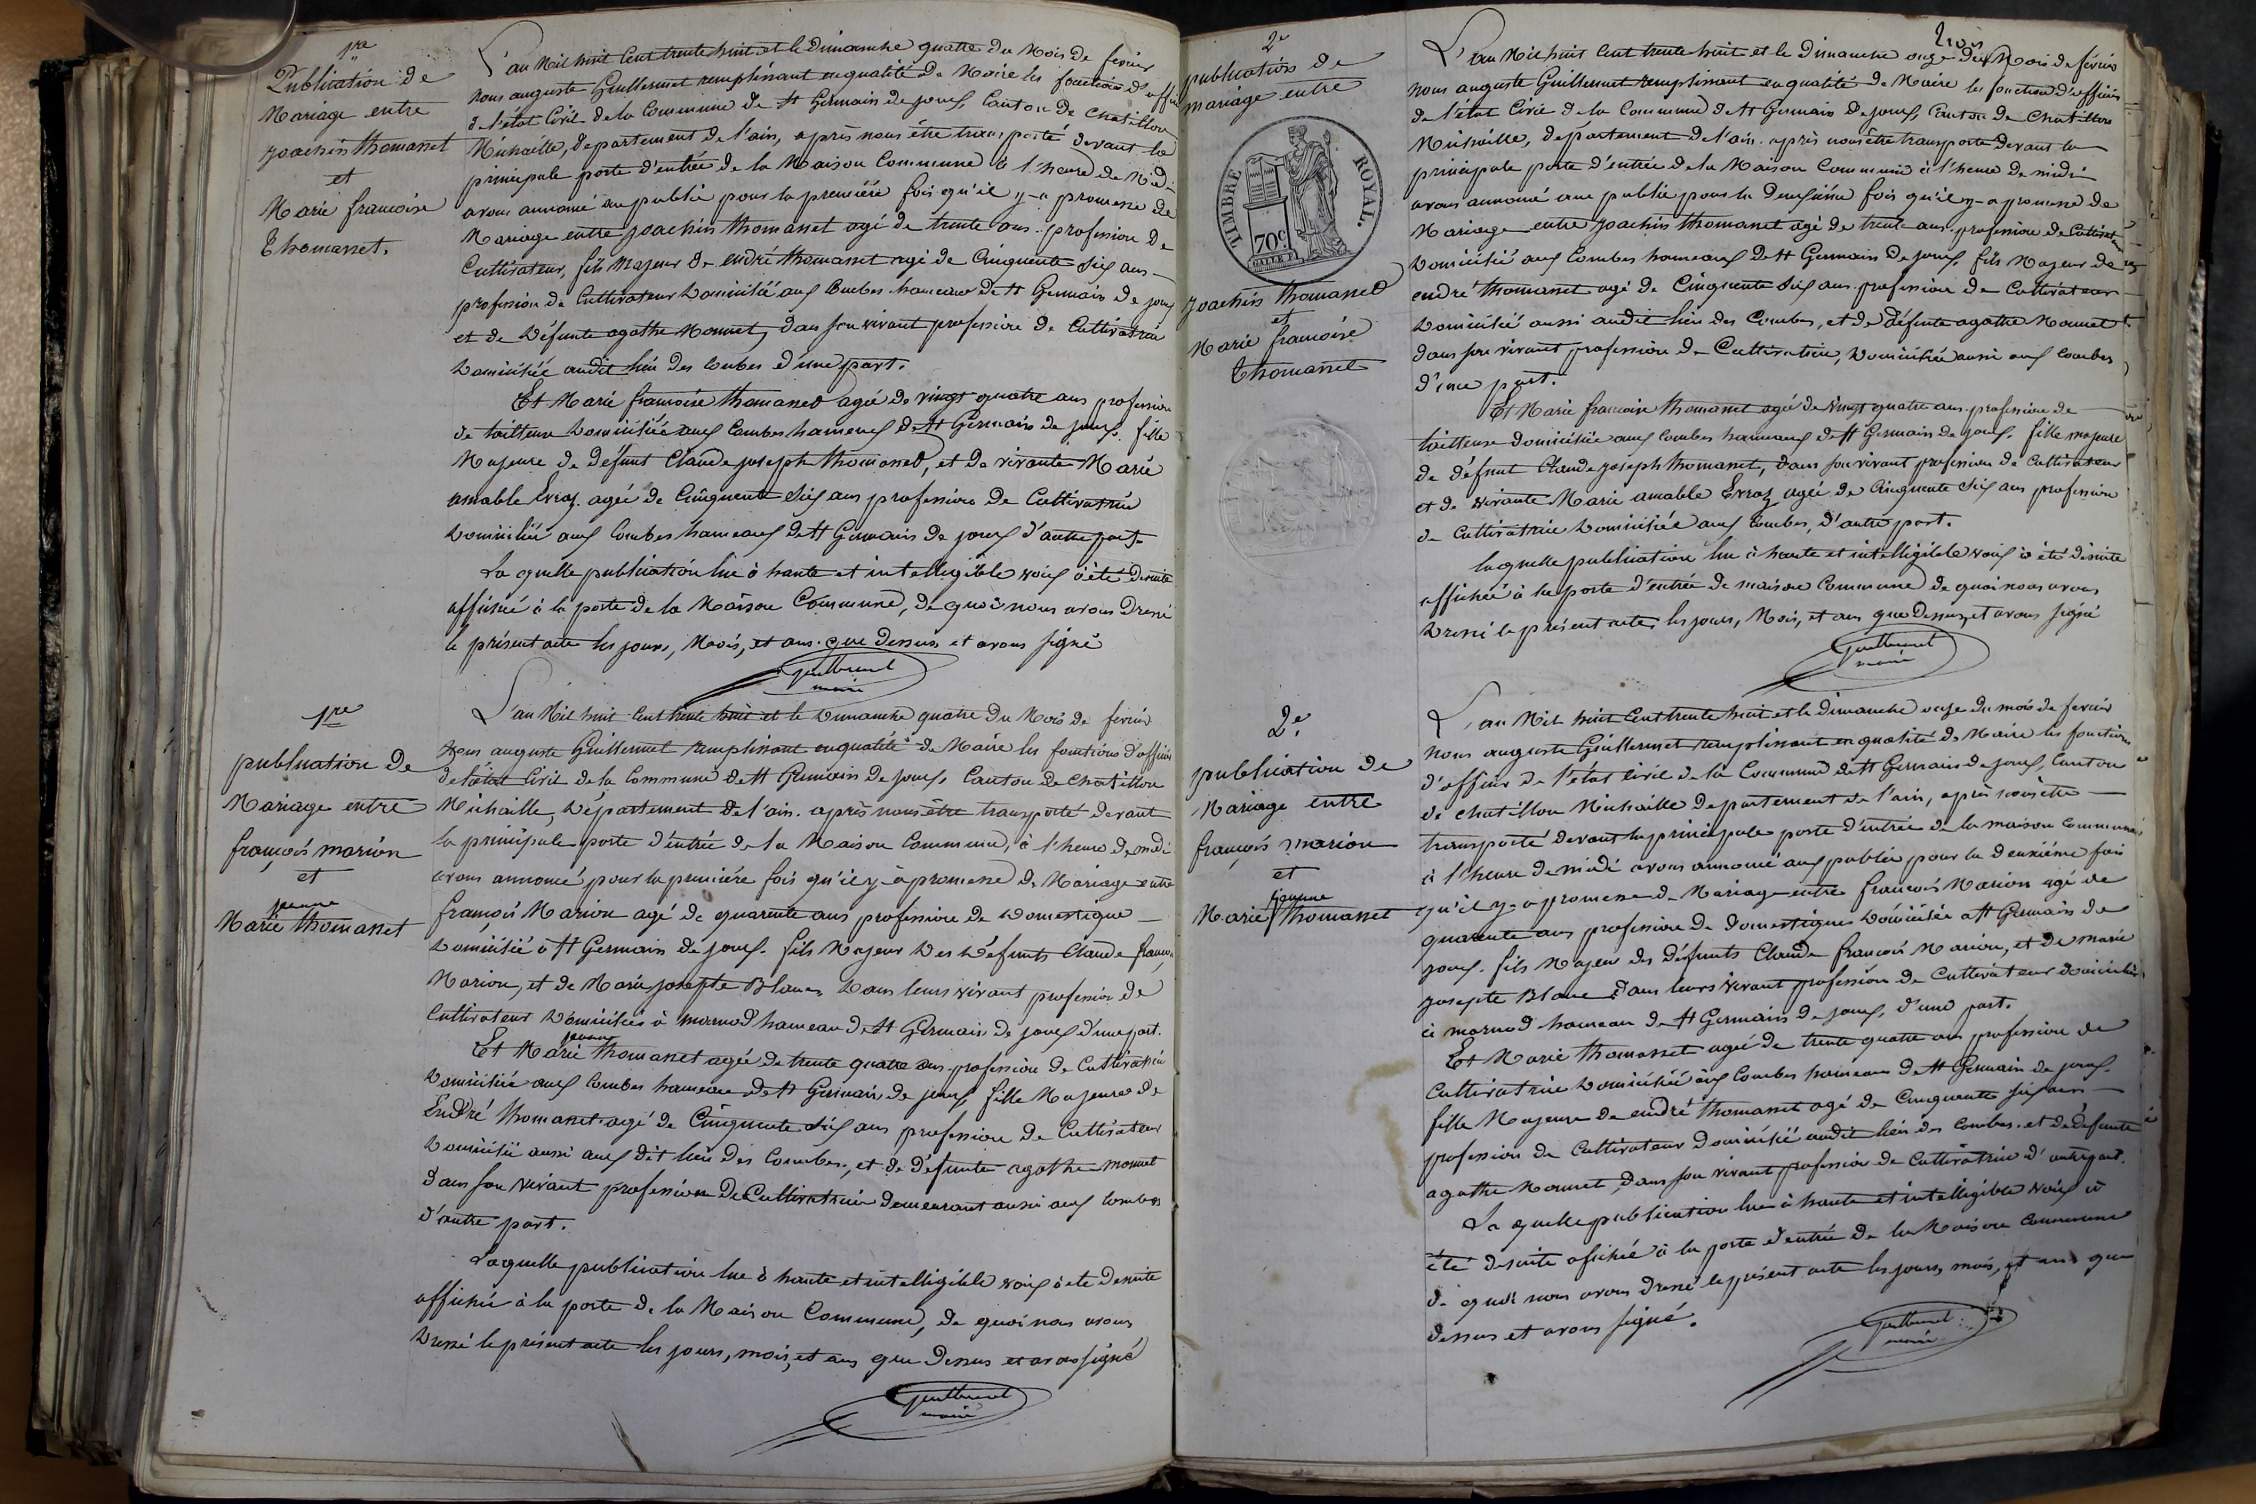 1re
Publication de
Mariage entre
joachin thomasset
et
Marie francoise
Thomasset.
L'an Mil huit Cent trente huit et le dimanche quatre du Mois de fevrier
nous auguste Guillermet remplissant en qualité de Maire les fonctions d'offi
de l'état Civil de la Commune de St Germain de joux, Canton de Chatillon
Michaille, département de l'ain, après nous être transporté devant la
principale porte d'entrée de la Maison Commune à l'heure de Midi
avons annoncé au public pour la première fois qu'il y-a promesse de
Mariage entre joachin thomasset agé de trente ans. profession de
Cultivateur, fils Majeur de endré thomasset agé de Cinquente Six ans
profession de Cultivateur Domicilié aux Combes hameau de St Germain de joux
et de Défunte agathe Monnet, dans son vivant profession de Cultivatrice
Domiciliée audit lieu des Combes d'une part.
Et Marie francoise thomasset agée de vingt quatre ans profession
de tailleuse Domiciliée aux Combes hameaux de St Germain de joux. fille
Majeure de défunt Claude joseph thomasset, et de vivante Marie
amable Evraz. agée de Cinquente Six ans profession de Cultivatrice
Domiciliée aux Combes hameaux de St Germain de joux d'autre part.
La quelle publication lue à haute et intelligible voix à été desuite
affichée à la porte de la Maison Commune, de quoi nous avons Dressé
le présent acte les jours, Mois, et ans. que dessus et avons signé
Guillermet
maire
1re
publication de
Mariage entre
françois marion
et
jeanne
Marie thomasset
L'an Mil huit Cent trente huit et le Dimanche quatre Du Mois de fevrier
nous auguste Guillermet remplissant en qualité de Maire les fonctions d'officier
de l'état Civil de la Commune de St Germain de joux, Canton de Chatillon
Michaille, Département de l'ain. après nous être transporté devant
la principale porte d'entrée de la Maison Commune, à l'heure de midi
avons annoncé pour la première fois qu'il y-à promesse de Mariage entre
françois Marion agé de quarente ans profession de Domestique
Domicilié à St Germain de joux. fils Majeur Des Défunts Claude françois
Marion, et de Marie josepte Blanc, Dans leurs vivant profession de
Cultivateur Domiciliés à marnod hameau de St Germain de joux d'une part.
jeanne
Et Marie thomasset agée de trente quatre ans profession de Cultivatrice
Domiciliée aux Combes hameau de St Germain de joux fille Majeure de
Endré thomasset agé de Cinquente Six ans profession de Cultivateur
Domicilié aussi aux dit lieu des Combes, et de défunte agathe monnet
Dans son vivant profession De Cultivatrice demeurant aussi aux Combes
d'autre part.
Laquelle publication lue à haute et intelligible voix à été desuite
affichée à la porte de la Maison Commune, de quoi nous avons
Dressé le présent acte les jours, mois, et ans que Dessus et avons signé
Guillermet
maire
trois
2e
publication de
mariage entre
TIMBRE ROYAL.
70c
joachin thomasset
et
Marie francoise
thomasset
L'an Mil huit Cent trente huit et le Dimanche onze du Mois de fevrier
nous auguste Guillermet remplissant en qualité de Maire les fonctions d'officier
de l'état Civil de la Commune de St Germain de joux, Canton de Chatillon
Michaille, département de l'ain. après nous être transporté devant la
principale porte d'entrée de la Maison Commune à l'heure de midi
avons annoncé au public pour la deuxième fois qu'il y-a promesse de
Mariage entre joachin thomasset agé de trente ans profession de Cultivateur
Domicilié aux Combes hameaux de St Germain de joux, fils Majeur de
endré thomasset agé de Cinquente Six ans profession de Cultivateur
Domicilié aussi audit lieu des Combes, et de défunte agathe Monnet
dans son vivant profession de Cultivatrice, Domiciliée aussi aux Combes
d'une part.
Et Marie francoise thomasset agée de vingt quatre ans profession de
tailleuse domiciliée aux Combes hameaux de St Germain de joux. fille majeure
de défunt Claude joseph thomasset, dans son vivant profession de Cultivateur
et de vivante Marie amable Evraz agée de Cinquente Six ans profession
de Cultivatrice Domiciliée aux Combes, d'autre part.
laquelle publication lue à haute et intelligible voix à été desuite
affichée à la porte d'entrée de maison Commune de quoi nous avons
Dressé le présent acte les jours, Mois, et ans que Dessus, et avons signé
Guillermet
maire
2e.
publication de
Mariage entre
françois marion
et
jeanne
Marie thomasset
L'an Mil huit Cent trente huit et le dimanche onze du mois de fevrier
nous auguste Guillermet remplissant en qualité de Maire les fonctions
d'officier de l'état Civil de la Commune de St Germain de joux, Canton
de chatillon Michaille département de l'ain, après nous être
transporté devant la principale porte d'entrée de la maison Commune
à l'heure de midi avons annoncé aux public pour la deuxième fois
qu'il y-a promesse de Mariage entre francois Marion agé de
quarente ans profession de domestique Domicilié à St Germain de
joux. fils Majeur des défunts Claude francois Marion, et de marie
josepte Blanc dans leurs vivant profession de Cultivateur domiciliés
à marnod hameau de St Germain de joux, d'une part.
Et Marie thomasset agée de trente quatre ans profession de
Cultivatrice Domiciliée aux Combes hameau de St Germain de joux.
fille Majeure de endré thomasset agé de Cinquente Six ans
profession de Cultivateur domicilié audit lieu des Combes. et de défunte
agathe Monnet, dans son vivant profession de Cultivatrice d'autre part.
La quelle publication lue à haute et intelligible voix à
été desuite affichée à la porte d'entrée de la Maison Commune
de quoi nous avons dressé le présent acte les jours, mois, et ans que
dessus et avons signé.
Guillermet
maire